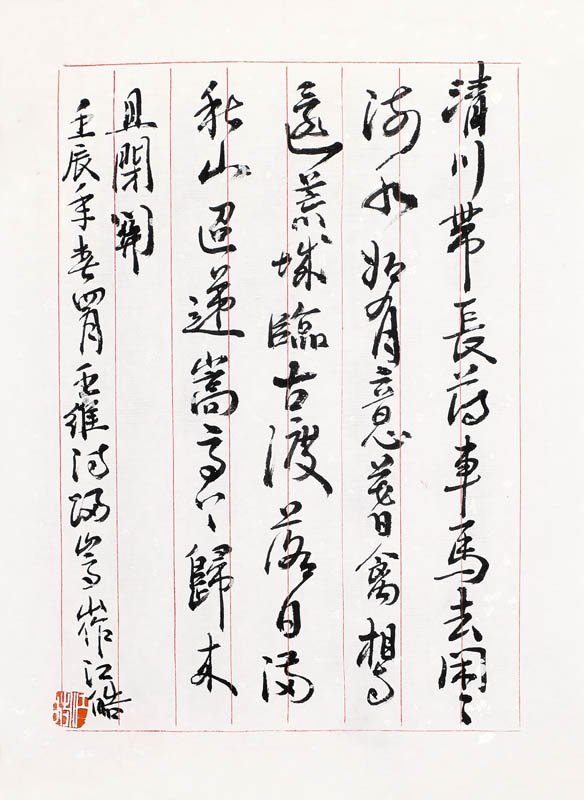 清川帶長薄車馬去閑〻
流水如有意暮禽相與
還荒城臨古渡落日滿
秋山迢遞嵩高下歸來
且閉關
壬辰年春四月王維詩歸嵩山作江